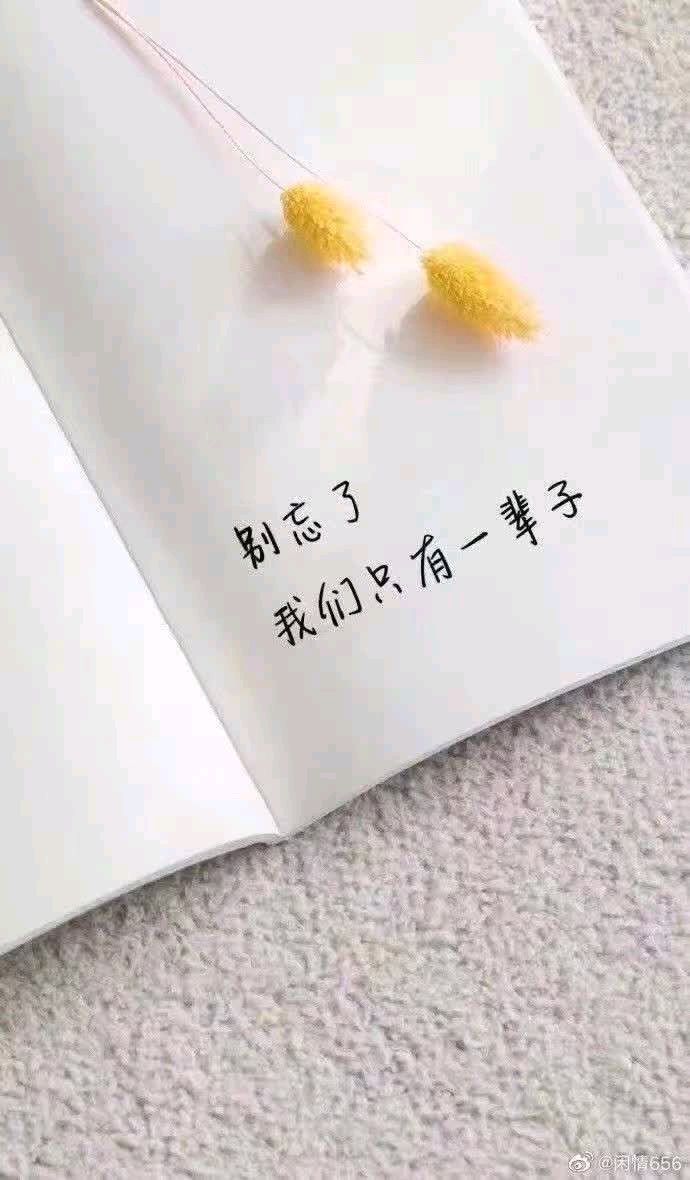 别忘了
我们只有一辈子
@闲情656